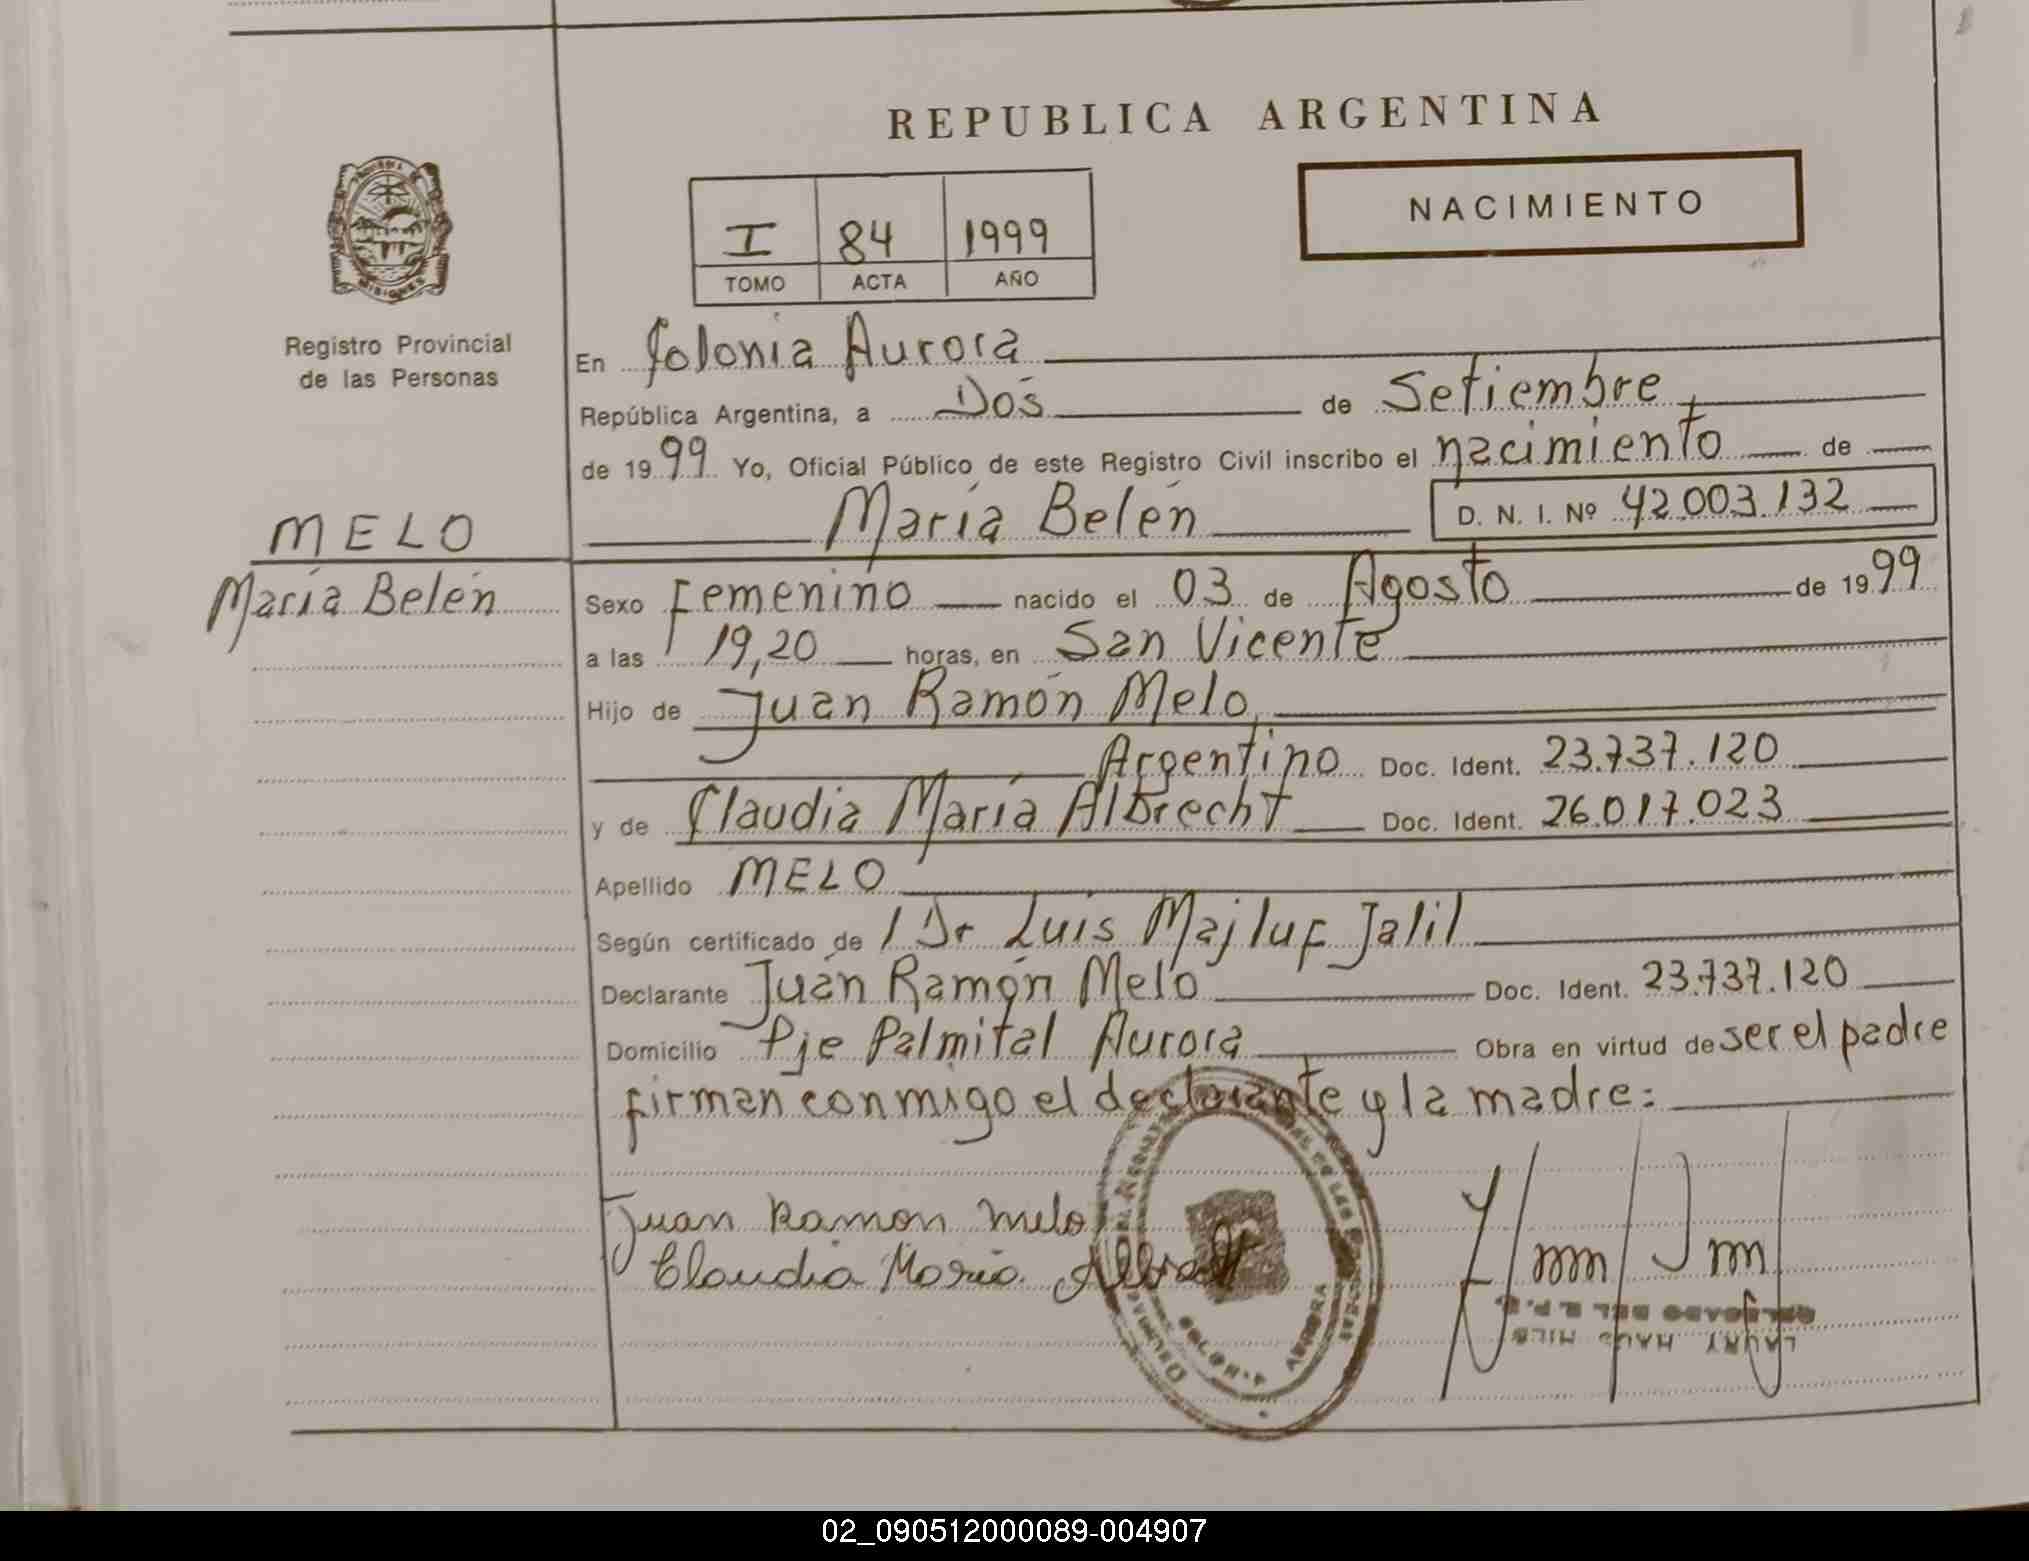 REPUBLICA ARGENTINA
NACIMIENTO
I 84 1999
TOMO ACTA AÑO
MISIONES
Registro Provincial
de las Personas
En Colonia Aurora
República Argentina, a Dos de Setiembre
de 1999 Yo, Oficial Público de este Registro Civil inscribo el nacimiento de
María Belén D. N. I. Nº 42.003.132
MELO
María Belén
Sexo Femenino nacido el 03 de Agosto de 1999
a las 19,20 horas, en San Vicente
Hijo de Juan Ramón Melo,
Argentino Doc. Ident. 23.737.120
y de Claudia María Albrecht Doc. Ident. 26.017.023
Apellido MELO
Según certificado de / Dr Luis Majluf Jalil
Declarante Juan Ramón Melo Doc. Ident. 23.737.120
Domicilio Pje Palmital Aurora Obra en virtud de ser el padre
firman conmigo el declarante y la madre:
Juan Ramon Melo
Claudia Maria
COLONIA AURORA
DELEGADO DEL R.P.P.
LAURY HAUS
02_090512000089-004907